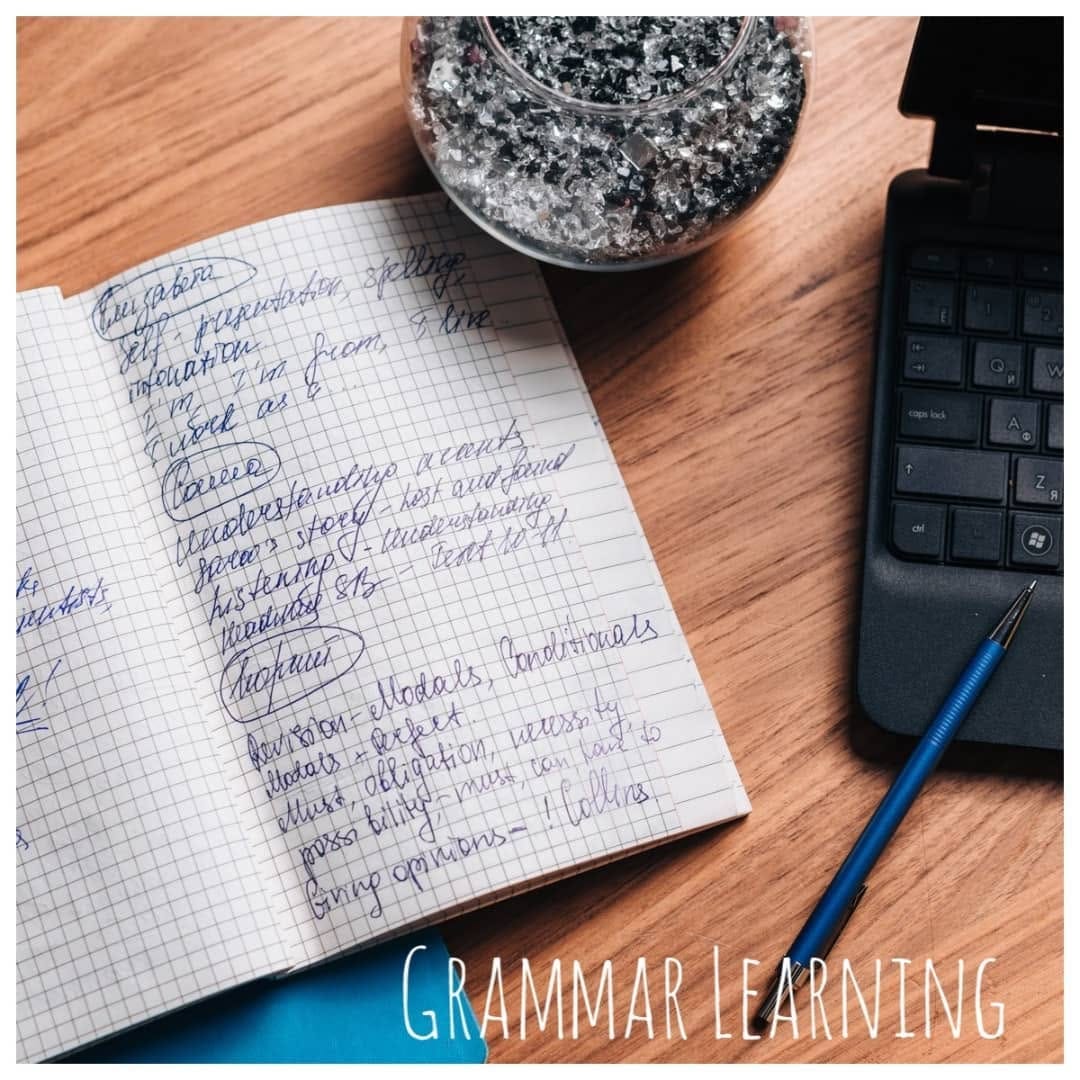 Елизавета
self-presentation, spelling,
intonation.
I'm I'm from, I live..
I work as a ...
understanding accents
Sara's story - Lost and found
Listening - understanding
Reading SB - Test 10-11
Revision - Modals, Conditionals
Modals + Perfect.
Must, obligation, necessity
possibility - must, can, have to
Giving opinions - ! Collins.
caps lock
ctrl
Q
Й
W
A
Ф
Z
Я
1
2
Ё
GRAMMAR LEARNING